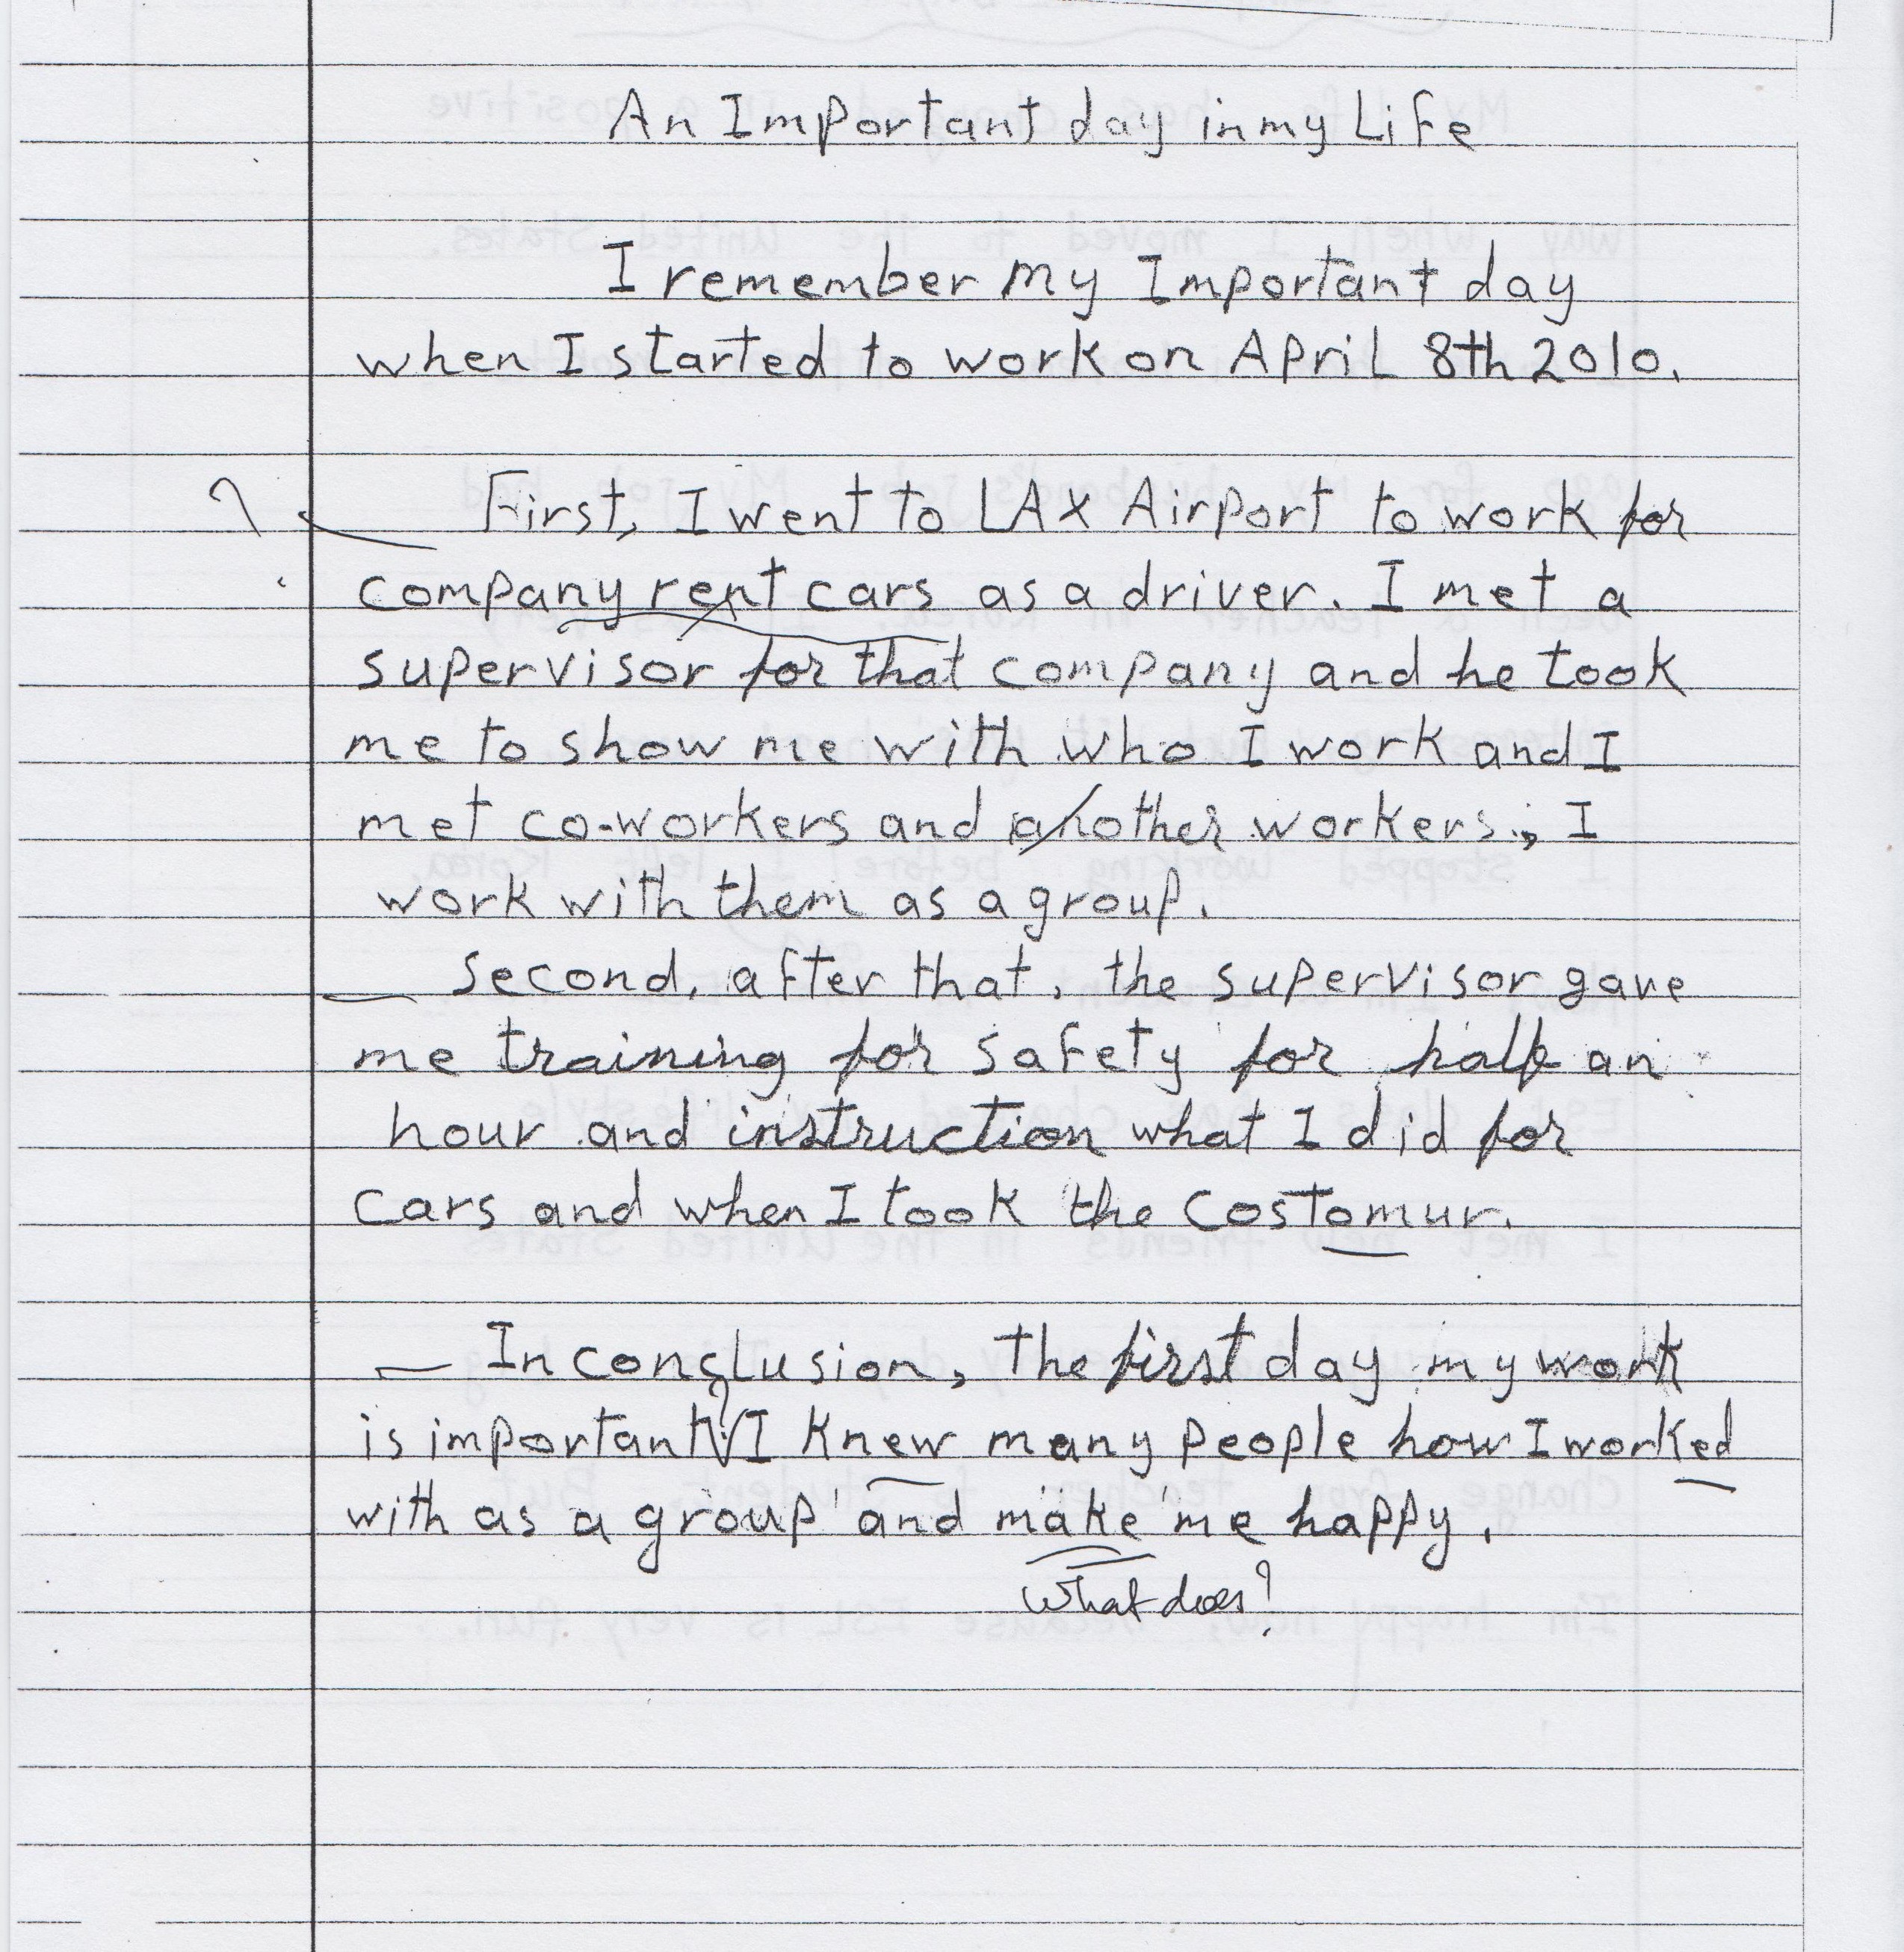 An Important day in my Life
I remember my Important day
when I started to work on April 8th 2010.
? First, I went to LAX Airport to work for
company rent cars as a driver. I met a
supervisor for that company and he took
me to show me with who I work and I
met co-workers and another workers., I
work with them as a group.
second, after that, the supervisor gave
me training for safety for half an
hour and instruction what I did for
cars and when I took the costomur.
In conclusion, the first day my work
is important I knew many people how I worked
with as a group and make me happy.
What does?